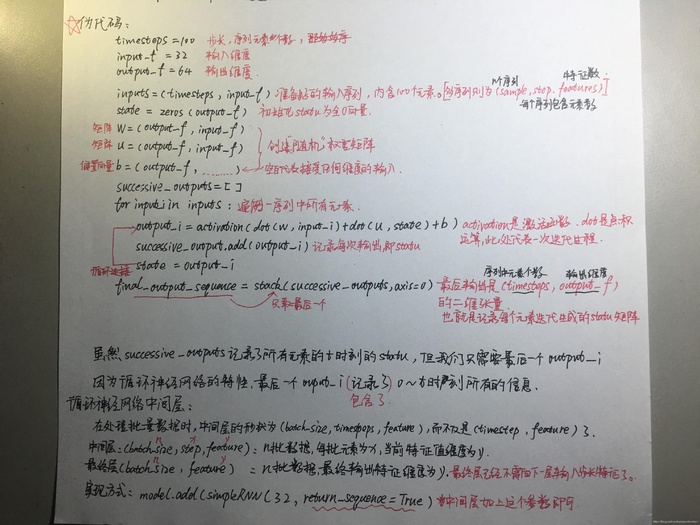 ☆伪代码：
timesteps = 100 步长，序列元素个数，
input_f = 32 输入维度
output_f = 64 输出维度.
n个序列 特征数
inputs = (timesteps, input_f) 准备好的输入序列，内含100个元素。[n序列则为(sample, step, features)]
每个序列包含元素数
state = zeros (output_f) 初始化statu为全0向量.
矩阵 w = (output_f, input_f)
矩阵 u = (output_f, input_f) 创建"随机"权重矩阵
偏置向量 b = (output_f, ........) 空白代表接受任何维度的输入.
successive_outputs = [ ]
for input_i in inputs : 遍历一序列中所有元素.
output_i = activation(dot(w, input_i) + dot(u, state) + b) activation是激活函数. dot是点积
运算，此处代表一次迭代过程.
successive_output.add(output_i) 记录每次输出，即statu
循环连接 state = output_i
序列中元素个数 输出维度
final_output_sequence = stack(successive_outputs, axis=0) 最后输出是(timesteps, output_f)
只需最后一个 的二维张量.
也就是记录每个元素迭代生成的statu矩阵
虽然 successive_outputs 记录了所有元素的t时刻的statu，但我们只需要最后一个output_i
因为循环神经网络的特性. 最后一个 ouput_i (记录了) 0~t时刻所有的信息.
包含了
循环神经网络中间层：
在处理批量数据时，中间层的形状为(batch_size, timesteps, feature)，而不仅是(timestep, feature)了.
中间层=(batch_size, step, feature) = n批数据，每批元素为x，当前特征值维度为y.
最终层(batch_size, feature) = n批数据，最终输出特征维度为y. 最终层已经不需向下一层车输入步长特征了。
实现方式：model.add(simpleRNN(32, return_sequence=True) 中间层加上这个参数即可